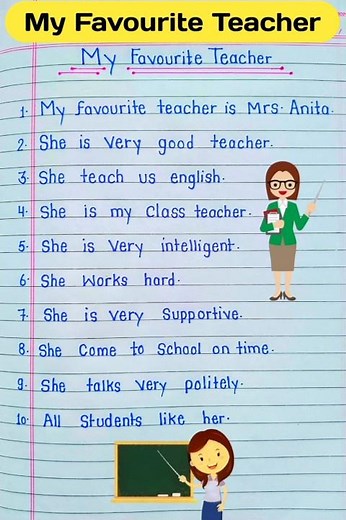 My Favourite Teacher
My Favourite Teacher
1. My favourite teacher is Mrs. Anita.
2. She is very good teacher.
3. She teach us english.
4. She is my Class teacher.
5. She is Very intelligent.
6. She Works hard.
7. She is very Supportive.
8. She Come to School on time.
9. She talks very politely.
10. All Students like her.